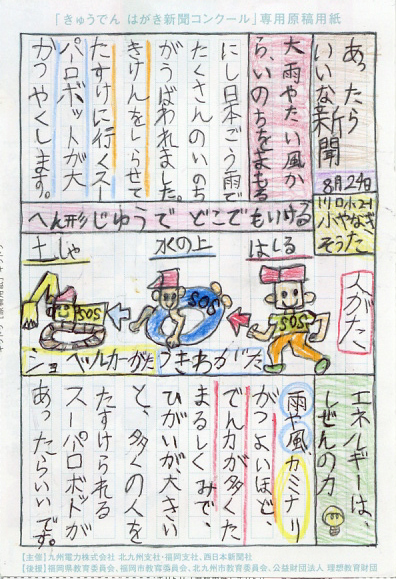 「きゅうでん はがき新聞コンクール」専用原稿用紙
あったら
いいな新聞
8月24日
小やなぎ
そうた
大雨やたい風か
ら、いのちをまもる
にし日本ごう雨で
たくさんのいのち
がうばわれました。
きけんをしらせて
たすけに行くスー
パーロボットが大
かつやくします。
へん形じゆうで どこでもいける
はしる
水の上
土しゃ
SOS
SOS
SOS
人がた
うきわがた
ショベルカーがた
エネルギーは、
しぜんの力
雨や風、カミナリ
がつよいほど
でん力が多くた
まるしくみで、
ひがいが大きい
と、多くの人を
たすけられる
スーパロボットが
あったらいいです。
【主催】九州電力株式会社 北九州支社・福岡支社、西日本新聞社
【後援】福岡県教育委員会、福岡市教育委員会、北九州市教育委員会、公益財団法人 理想教育財団